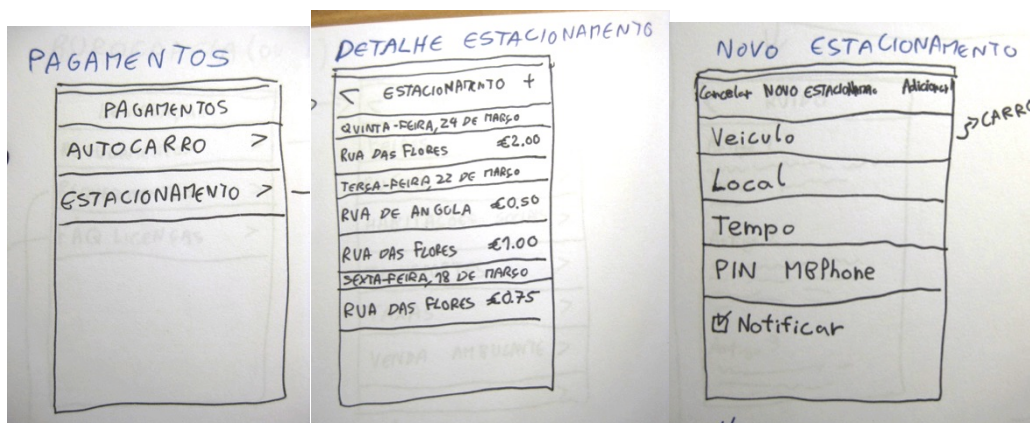 PAGAMENTOS
PAGAMENTOS
AUTOCARRO >
ESTACIONAMENTO >
DETALHE ESTACIONAMENTO
< ESTACIONAMENTO +
QUINTA-FEIRA, 24 DE MARÇO
RUA DAS FLORES €2.00
TERÇA-FEIRA, 22 DE MARÇO
RUA DE ANGOLA €0.50
RUA DAS FLORES €1.00
SEXTA-FEIRA, 18 DE MARÇO
RUA DAS FLORES €0.75
VENDA AMBULANTE >
NOVO ESTACIONAMENTO
Cancelar NOVO Adicionar
CARRO
Veiculo
Local
Tempo
PIN MBPhone
☑ Notificar